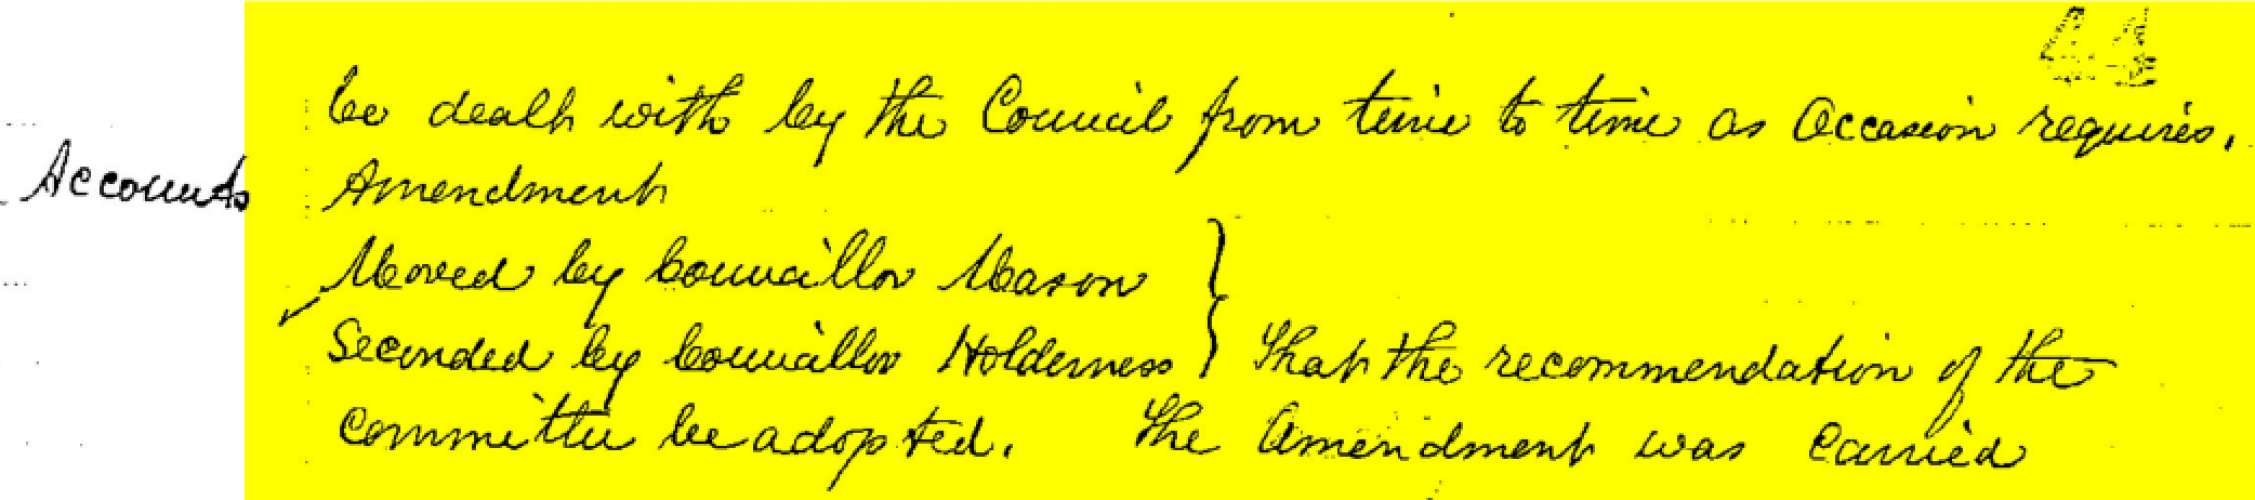 44
be dealt with by the Council from time to time as Occasion requires.
Accounts
Amendment
Moved by Councillor Mason }
Seconded by Councillor Holderness } That the recommendation of the
Committee be adopted. The Amendment was Carried